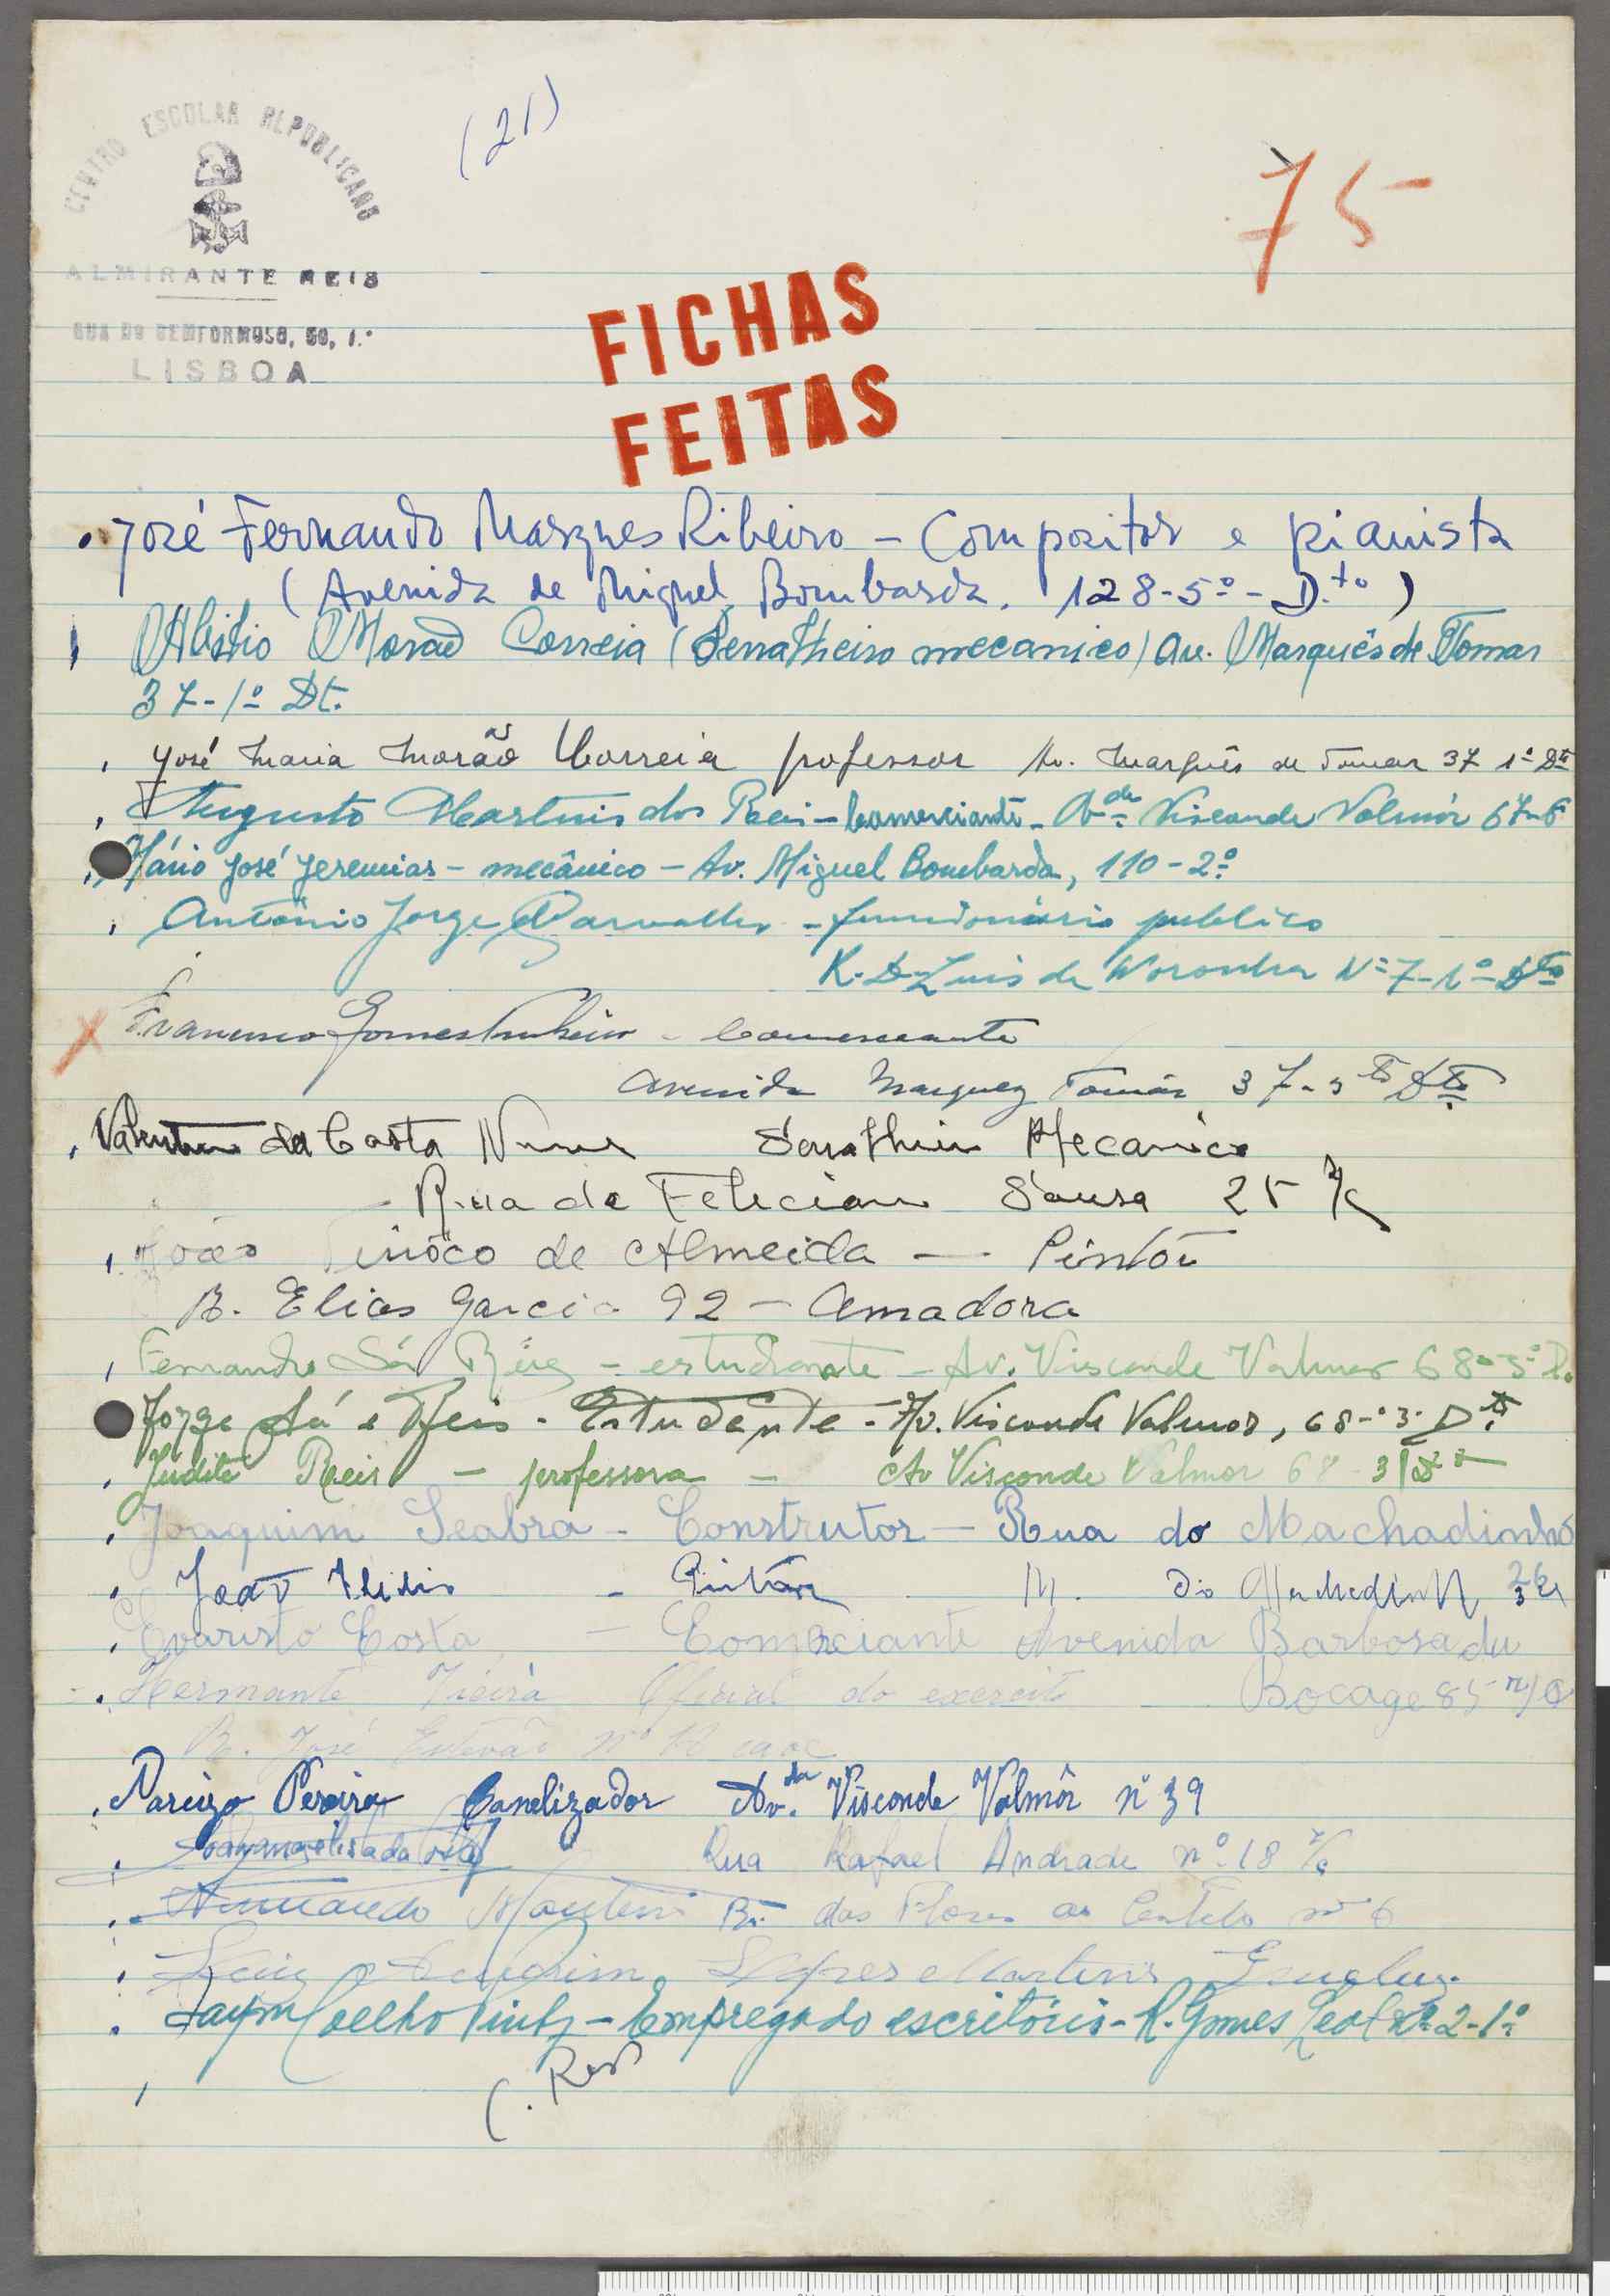 (21)
75
CENTRO ESCOLAR REPUBLICANO
ALMIRANTE REIS
RUA DO BEMFORMOSO, 50, 1.º
LISBOA
FICHAS
FEITAS
José Fernando Marques Ribeiro - Compositor e pianista
(Avenida de Miguel Bombarda, 128-5º-D.to)
Abilio Morão Correia (Serralheiro mecanico) Av. Marquês de Tomar
37-1º Dt.
José Maria Morão Correia professor Av. Marquês de Tomar 37 1º Dto
Augusto Martins dos Reis - Comerciante - Visconde Valmôr 67-6º
Mário José Jeremias - mecânico - Av. Miguel Bombarda, 110-2º
António Jorge Carvalho - funcionário publico
R. D. Luis de Noronha Nº 7-1º-Dto
Francisco Gomes - Comerciante
Avenida Marquez Tomar 37-3º Dto
Valentim da Costa Nunes Serralheiro Mecanico
Rua de Feliciano Sousa 25 r/c
João Tinôco de Almeida — Pintôr
R. Elias Garcia 92 - Amadora
Fernando Sá Reis - estudante - Av. Visconde Valmor 68-3º D.
Jorge Sá e Reis - Estudante - Av. Visconde Valmor, 68-3º Dto.
Judite Reis - professora - Av Visconde Valmor 68 3º Dto
Joaquim Seabra - Construtor - Rua do Machadinho
João - Pintôr do 26
Evaristo Costa - Comerciante Avenida Barbosa du
Bocage 85 r/c
Hermante Vieira Oficial do exercito
R. José Estevão nº
Narcizo Pereira Canalizador Av.da Visconde Valmôr nº 39
Rua Rafael Andrade nº 18 r/c
Armando Monteiro das Flores ao nº 6
Luiz Lopes Martins
Jaym Coelho Pinto - Empregado escritório - R. Gomes Leal nº 2-1º